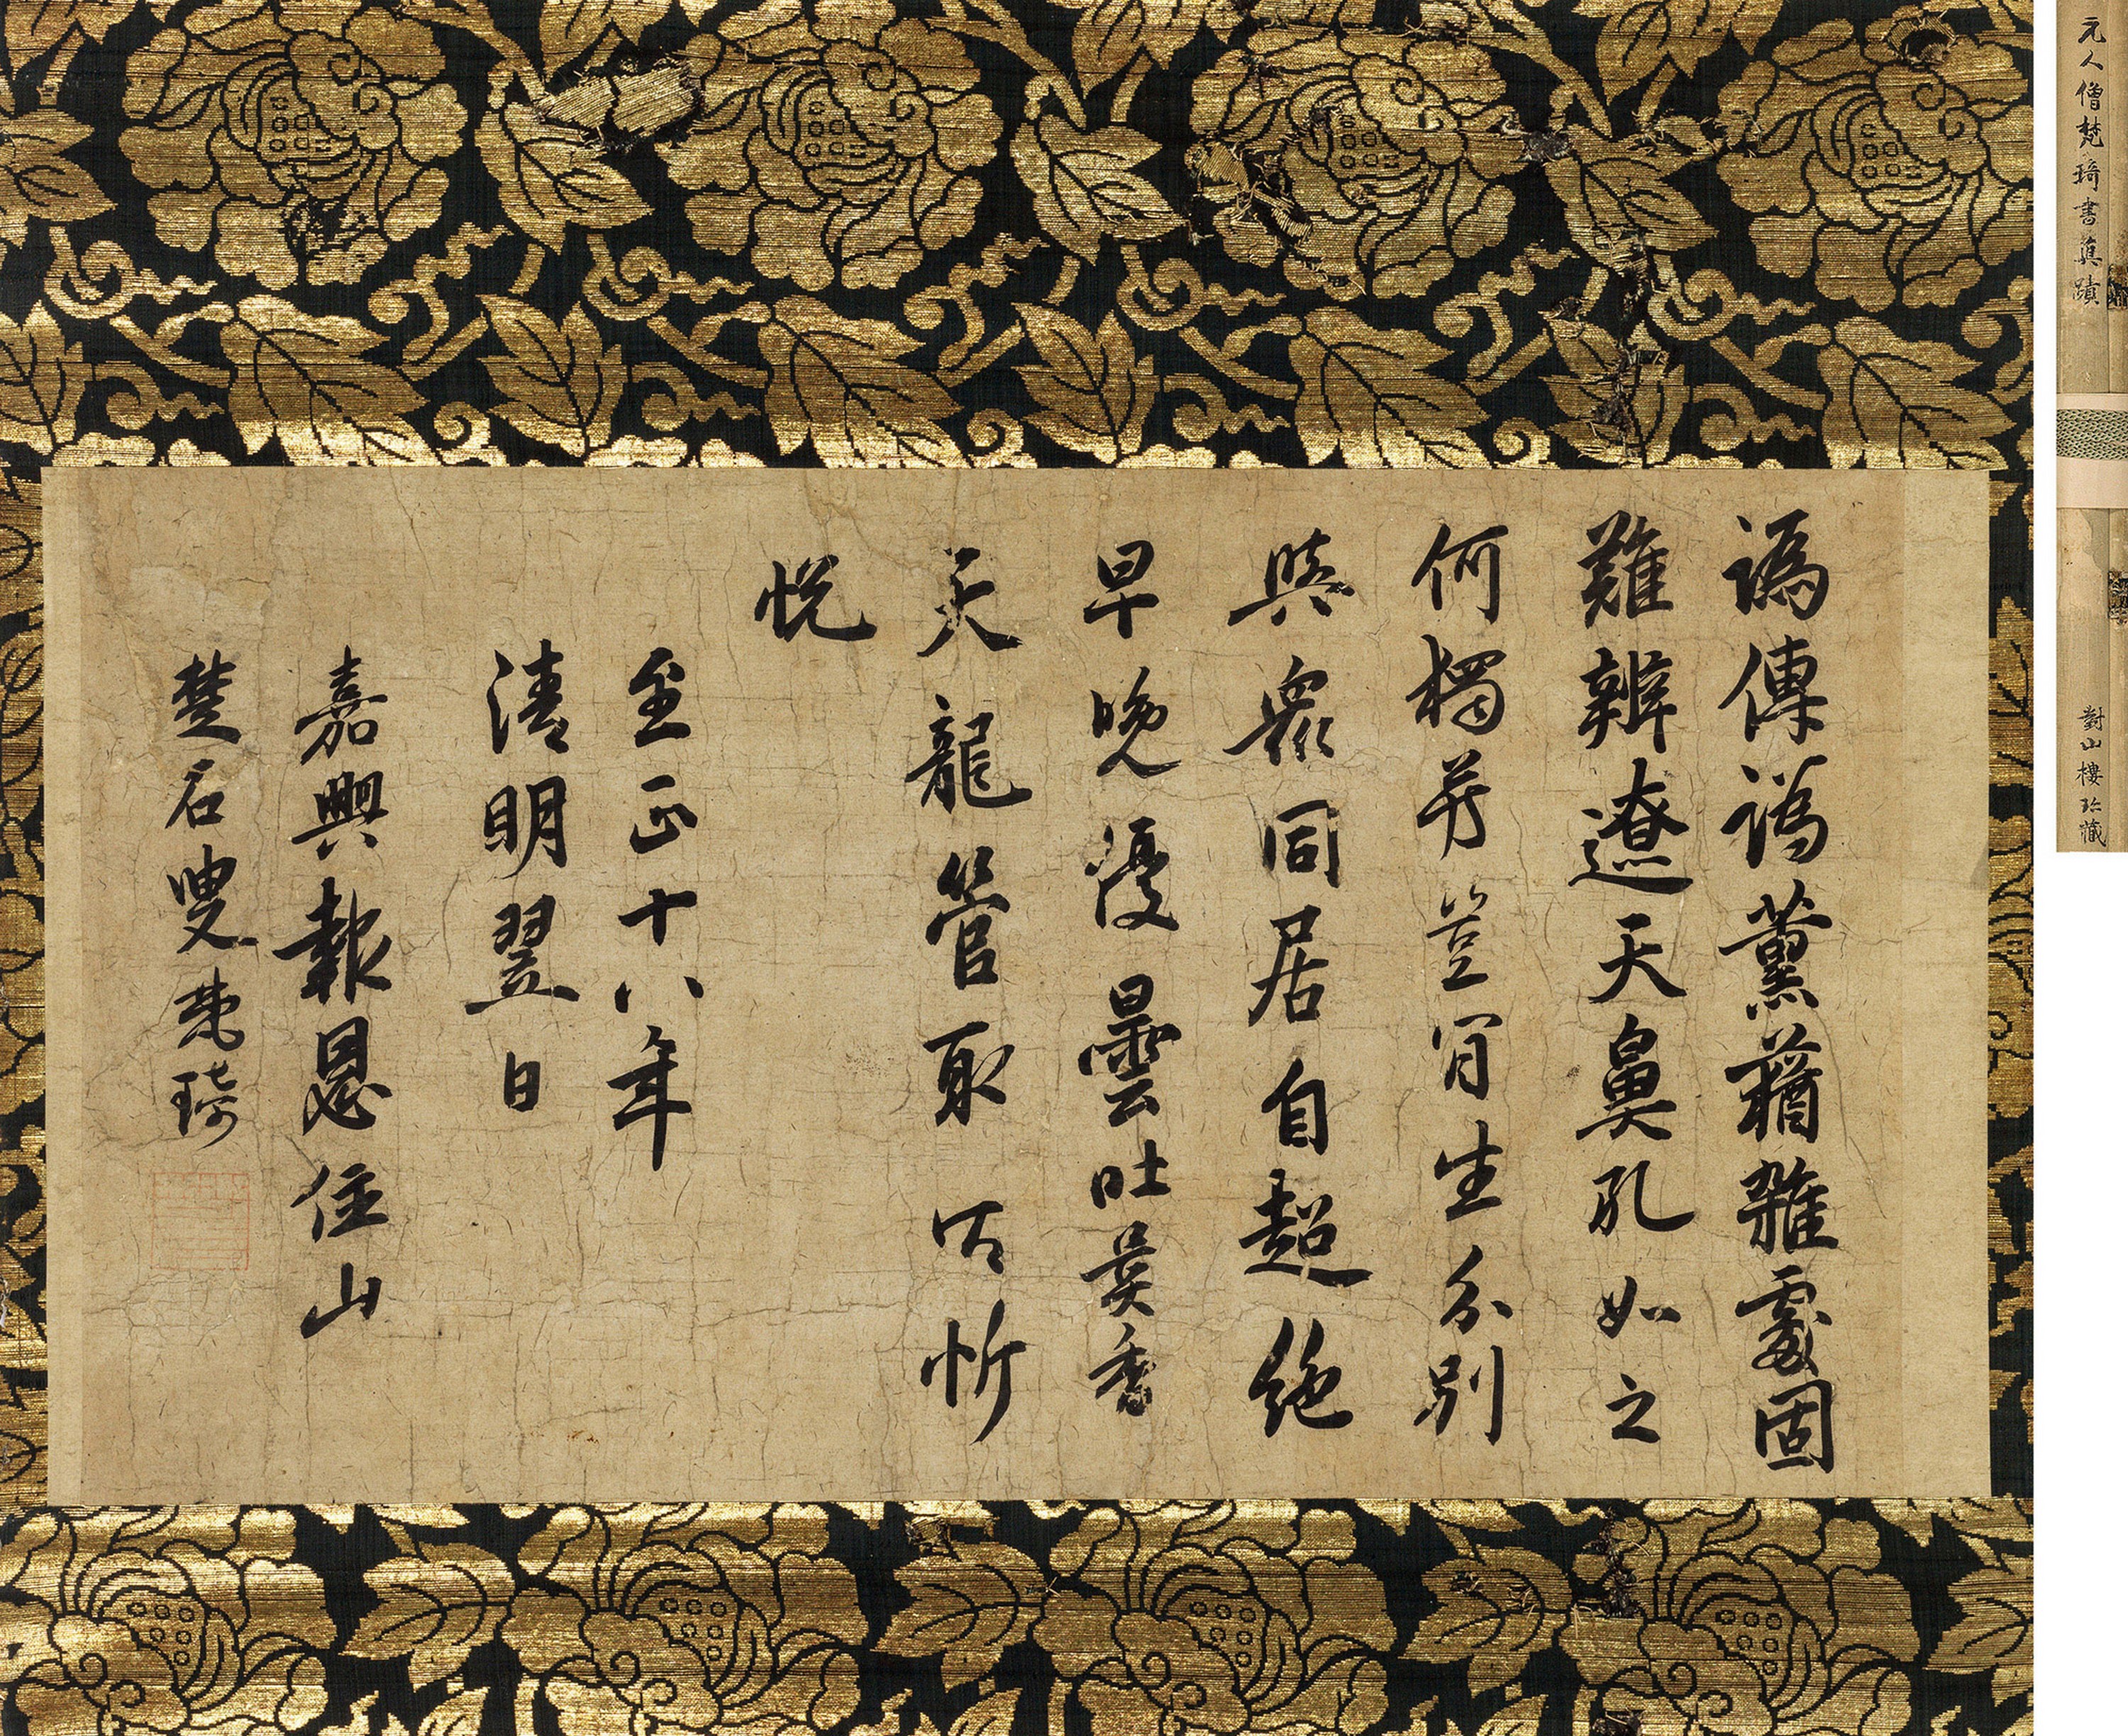 謌傳謌薰蕕雜處固
難辨遼天鼻孔如之
何獨芳豈肯生分別
與衆同居自超絶
早晚優曇吐異香
天龍管取皆忻
悅
至正十八年
清明翌日
嘉興報恩住山
楚石叟梵琦
元人僧梵琦書真蹟
對山樓珍藏